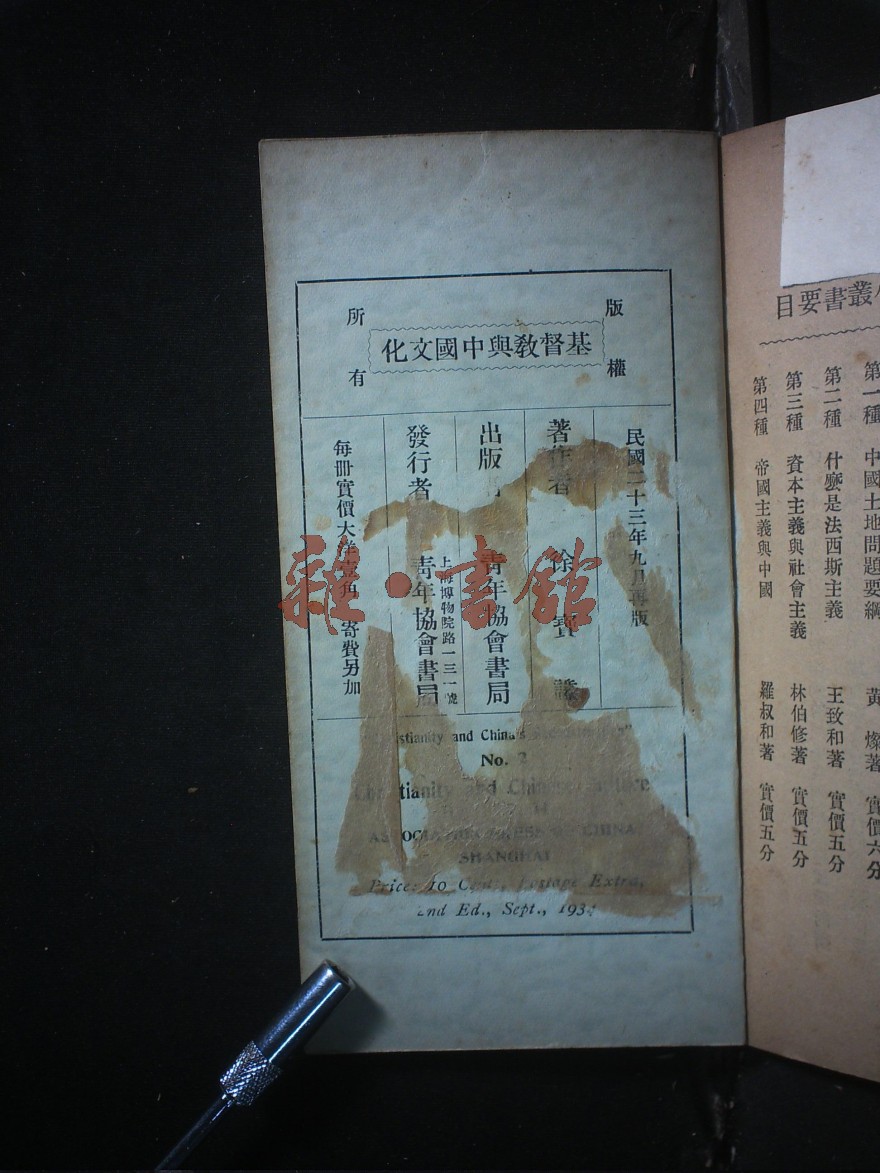 版權
所有
基督教與中國文化
民國二十三年九月再版
著作者 徐寶謙
出版 青年協會書局
發行者 青年協會書局
上海博物院路一三一號
每冊實價大洋壹角 寄費另加
and China's
No. 2
tianity and
SHANGHAI
Price: 10 Cents, Postage Extra,
2nd Ed., Sept., 1934
叢書要目
第一種 中國土地問題要綱 黃燦著 實價六分
第二種 什麼是法西斯主義 王致和著 實價五分
第三種 資本主義與社會主義 林伯修著 實價五分
第四種 帝國主義與中國 羅叔和著 實價五分
雜·書館